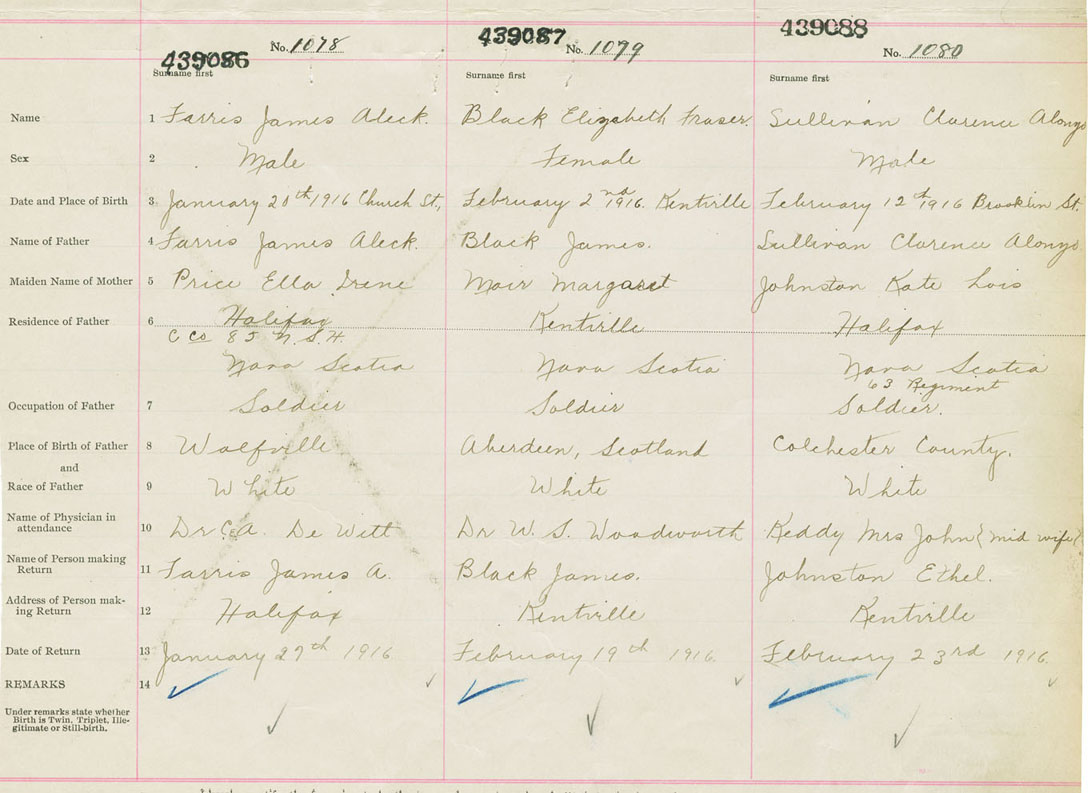 439086 No. 1078 439087 No. 1079 439088 No. 1080
Surname first Surname first Surname first
Name 1 Farris James Aleck. Black Elizabeth Fraser. Sullivan Clarence Alonzo
Sex 2 Male Female Male
Date and Place of Birth 3 January 20th 1916 Church St., February 2nd 1916. Kentville February 12th 1916 Brooklin St.
Name of Father 4 Farris James Aleck. Black James. Sullivan Clarence Alonzo
Maiden Name of Mother 5 Price Ella Irene Moir Margaret Johnston Kate Lois
Residence of Father 6 Halifax Kentville Halifax
C Co 85 N. S. H.
Nova Scotia Nova Scotia Nova Scotia
63 Regiment
Occupation of Father 7 Soldier Soldier Soldier.
Place of Birth of Father 8 Wolfville Aberdeen, Scotland Colchester County.
and
Race of Father 9 White White White
Name of Physician in
attendance 10 Dr C. A. De Witt Dr W. S. Woodworth Keddy Mrs John { mid wife }
Name of Person making
Return 11 Farris James A. Black James. Johnston Ethel.
Address of Person mak-
ing Return 12 Halifax Kentville Kentville
Date of Return 13 January 27th 1916 February 19th 1916. February 23rd 1916.
REMARKS 14
Under remarks state whether
Birth is Twin, Triplet, Ille-
gitimate or Still-birth.